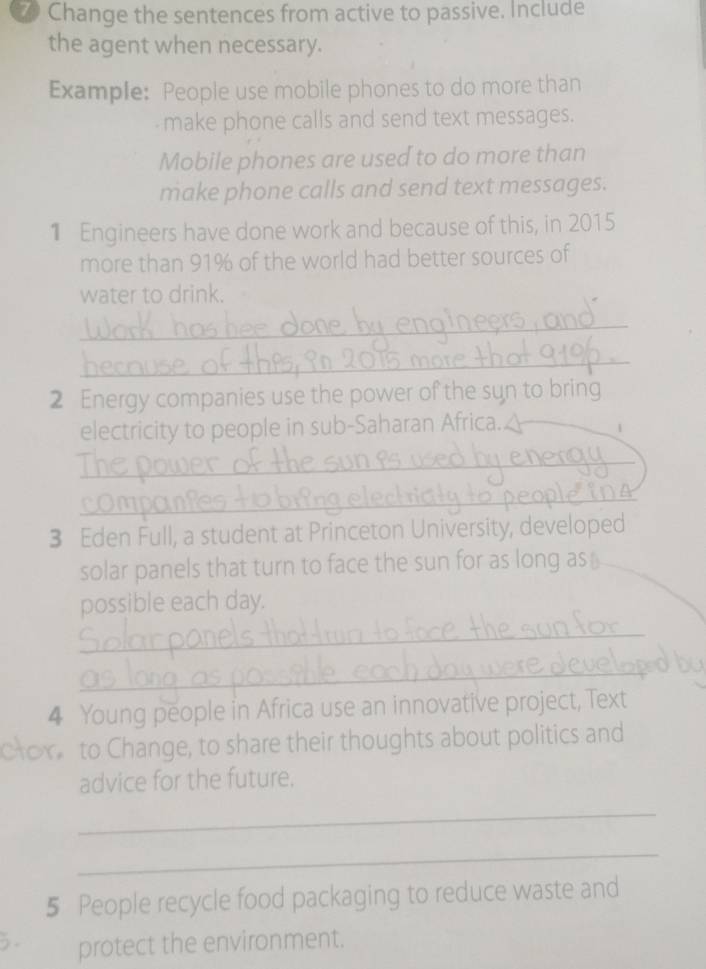 7 Change the sentences from active to passive. Include
the agent when necessary.
Example: People use mobile phones to do more than
make phone calls and send text messages.
Mobile phones are used to do more than
make phone calls and send text messages.
1 Engineers have done work and because of this, in 2015
more than 91% of the world had better sources of
water to drink.
Work has bee done by engineers, and
because of thes, in 2015 more that 91%.
2 Energy companies use the power of the sun to bring
electricity to people in sub-Saharan Africa.
The power of the sun is used by energy
companies to bring electricity to people in
3 Eden Full, a student at Princeton University, developed
solar panels that turn to face the sun for as long as
possible each day.
Solar panels that trun to face the sun for
as long as possible each day were developed by
4 Young people in Africa use an innovative project, Text
ctor. to Change, to share their thoughts about politics and
advice for the future.
5 People recycle food packaging to reduce waste and
protect the environment.